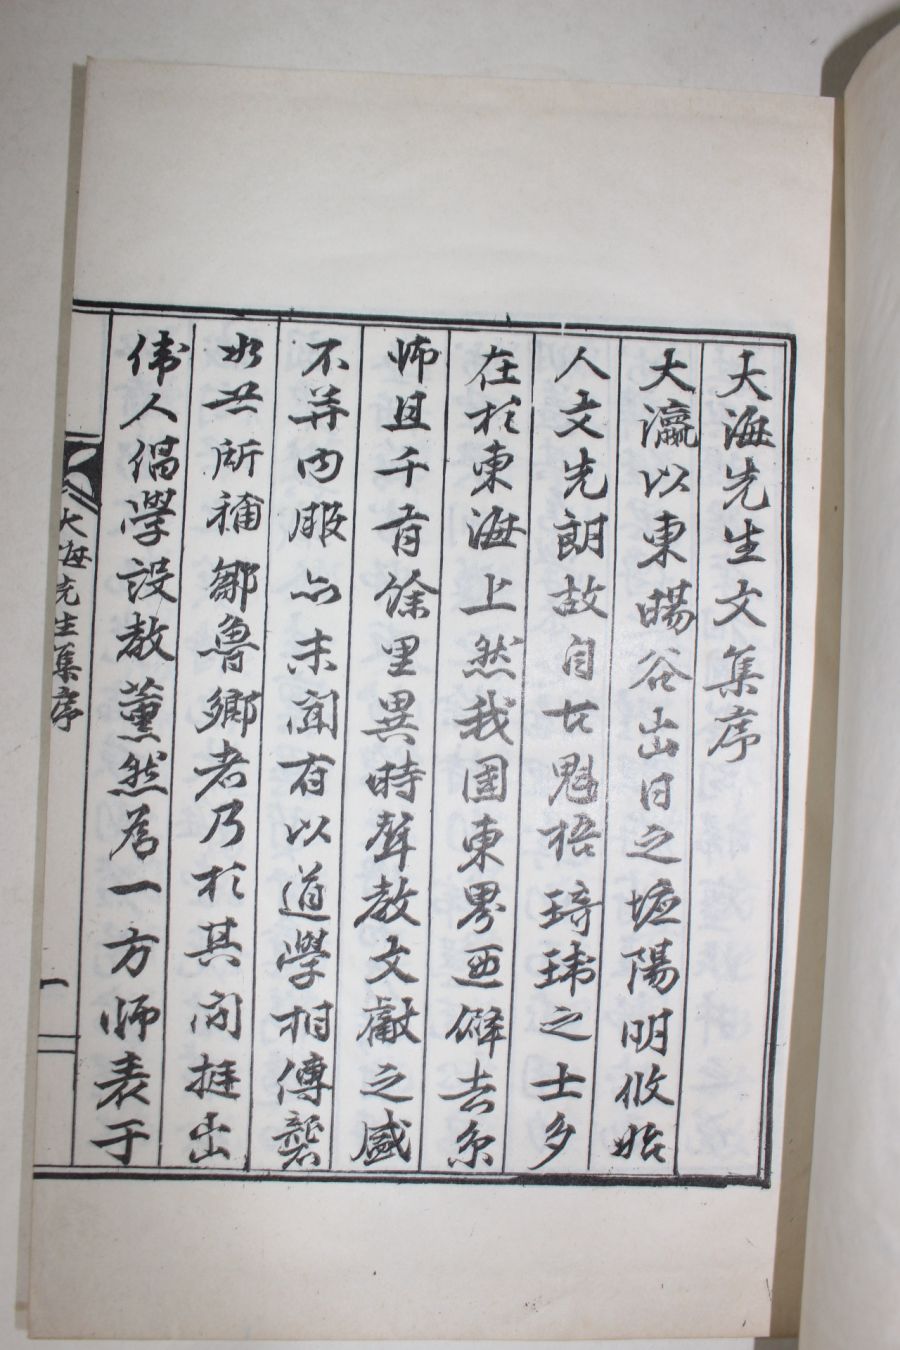 大海先生文集序
大瀛以東暘谷出日之墟陽明攸始
人文先朗故自古魁梧琦瑋之士多
在於東海上然我國東界西僻去京
師且千有餘里異時聲教文獻之盛
不並內服亦未聞有以道學相傳襲
如世所稱鄒魯鄉者乃於其間挺出
偉人倡學設教薰然爲一方師表于
大海先生集序
一